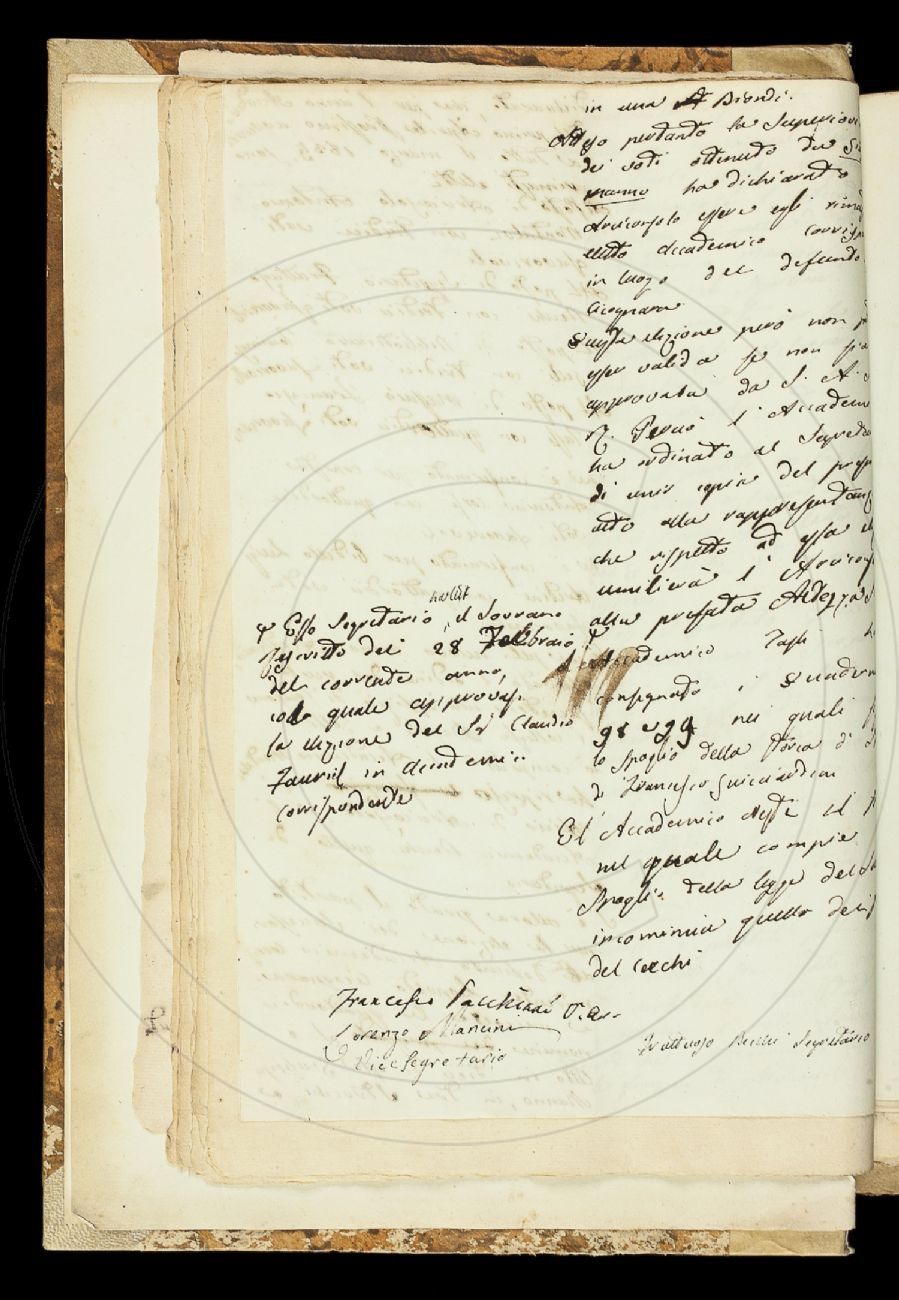 in una Biondi.
Atteso pertanto la Superiori
dei voti ottenuta da
Manno ha dichiarato
Arciconsolo essere egli
eletto Accademico corrisp
in luogo del defunto
Cicognara
Questa elezione però non p
esser valida se non sia
approvata da S. A.
R. Perciò l'Accadem
ha ordinato al Segreta
di unir copia del pres
atto alla rappresentanz
che rispetto ad essa
umilierà l'Arcicons
alla prefata Altezza S
Accademico
consegnato i Quadern
98 e 99 nei quali
lo Spoglio della Storia d'
di Francesco Guicciardini
E l'Accademico il
nel quale compie
Spoglio della legge del
incomincia quello
del Cecchi
ha letto
Esso Segretario il Sovrano
Rescritto dei 28 Febbraio
del corrente anno,
col quale approvasi
la elezione del Sr Claudio
Fauriel in Accademico
Corrispondente
Francesco Pacchiani V. Arc.
Lorenzo Mancini
Vicesegretario
Fruttuoso Becchi Segretario